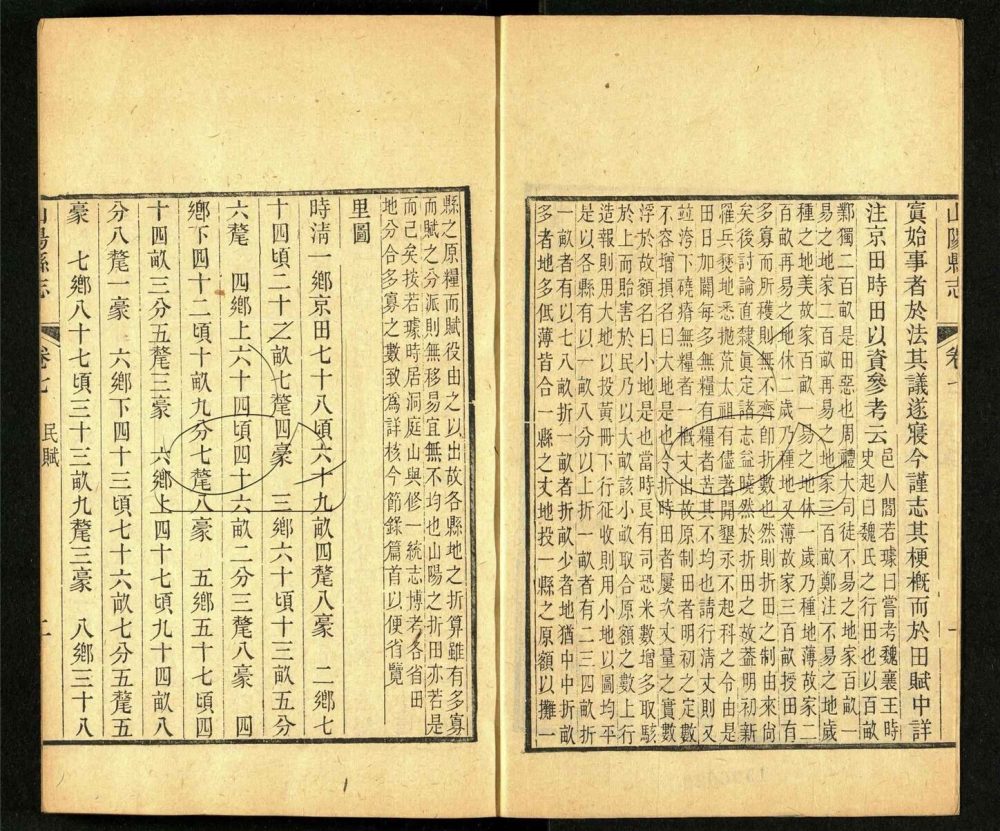 山陽縣志
卷七
一
實始事者於法其議遂寢今謹志其梗概而於田賦中詳
注京田時田以資參考云
邑人閻若璩曰嘗考魏襄王時
史起曰魏氏之行田也以百畝
鄴獨二百畝是田惡也周禮大司徒不易之地家百畝一
易之地家二百畝再易之地家三百畝鄭注不易之地歲
種之地美故家百畝一易之地休一歲乃種地薄故家二
百畝再易之地休二歲乃種地又薄故家三百畝授田有
多寡而所穫則無不齊卽折數也然則折田之制由來尙
矣後討論直隸眞定諸志益曉然於折田之故蓋明初新
罹兵燹地悉拋荒太祖有儘著開墾永不起科之令由是
田日加闢每多無糧有糧者苦其不均也請行清丈則又
並洿下磽瘠無糧者一概丈出故原制田者明初之定數
不容增損名曰大地是也今折時田者屢次丈量之實數
浮於故額名曰小地是也當時良有司恐米數增多取駭
於上而貽害於民乃以大畝該小畝取合原額之數上行
造報則用大地以投黃冊下行征收則用小地以圖均平
是以各縣有以一畝八分以上折一畝者有二三四畝折
一畝者有以七八畝折一畝折畝少者地猶中中折畝
多者地多低薄皆合一縣之丈地投一縣之原額以攤一
縣之原糧而賦役由之以出故各縣地之折算雖有多寡
而賦之分派則無移易宜無不均也山陽之折田亦若是
而已矣按若璩時居洞庭山與修一統志博考各省田
地分合多寡之數致爲詳核今節錄篇首以便省覽
里圖
時淸一鄉京田七十八頃六十九畝四釐八豪 二鄉七
十四頃二十二畝七釐四豪 三鄉六十頃十三畝五分
六釐 四鄉上六十四頃四十六畝二分三釐八豪 四
鄉下四十二頃十畝九分七釐八豪 五鄉五十七頃四
十四畝三分五釐三豪 六鄉上四十七頃九十四畝八
分八釐一豪 六鄉下四十三頃七十六畝七分五釐五
豪 七鄉八十七頃三十三畝九釐三豪 八鄉三十八
山陽縣志
卷七 民賦
二